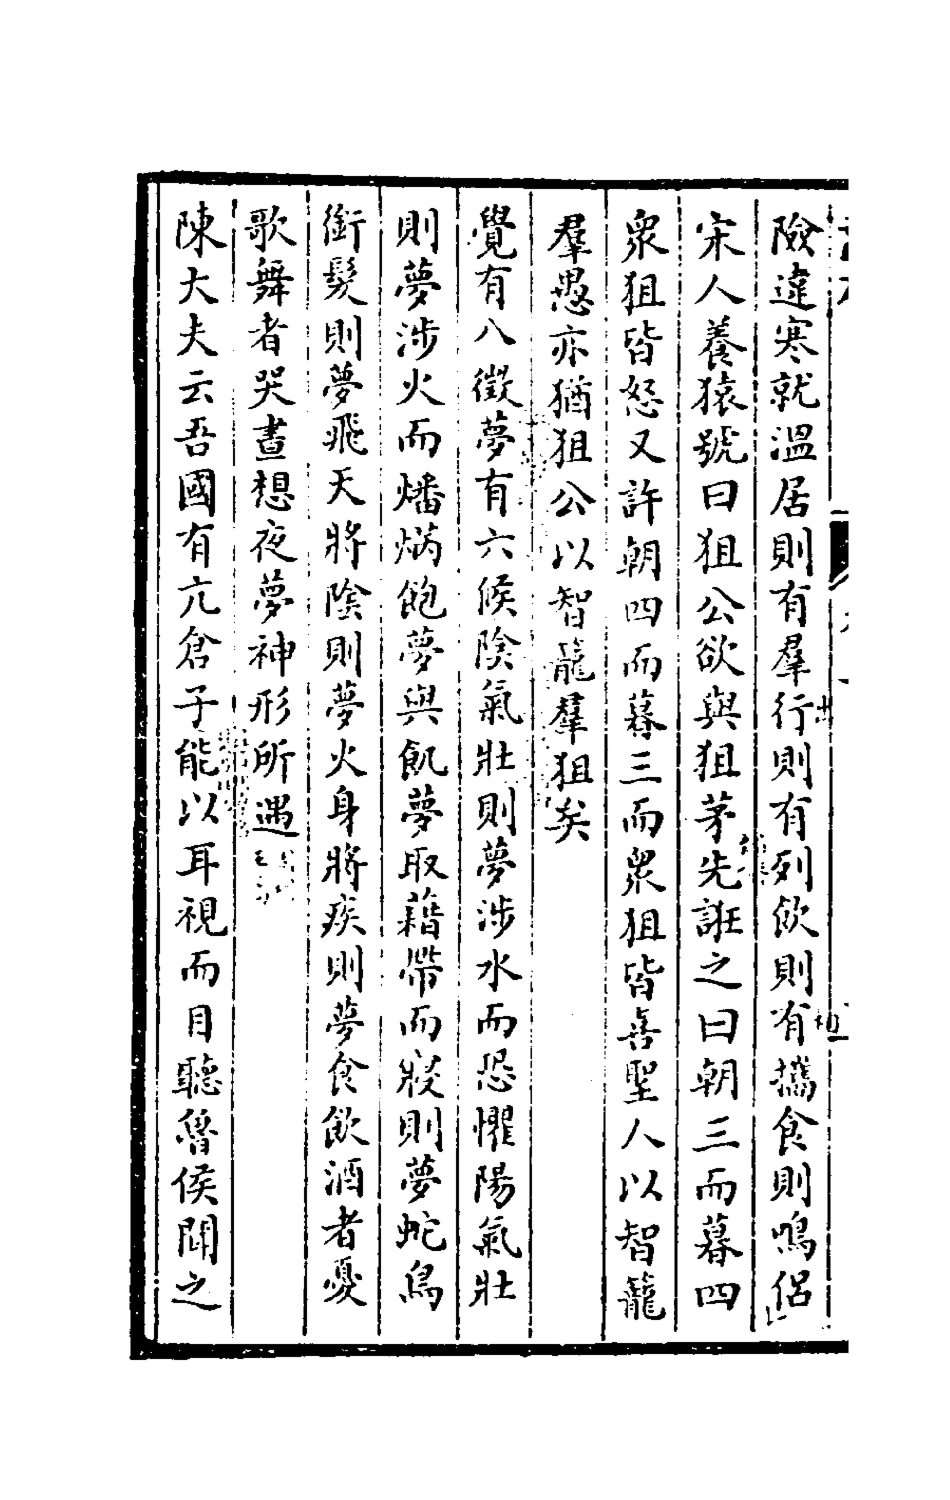 險違寒就溫居則有羣行則有列飲則有攜食則鳴侣
宋人養猿號曰狙公欲與狙茅先誑之曰朝三而暮四
衆狙皆怒又許朝四而暮三而衆狙皆喜聖人以智籠
羣愚亦猶狙公以智籠羣狙矣
覺有八徵夢有六候陰氣壯則夢涉水而恐懼陽氣壯
則夢涉火而燔焫飽夢與飢夢取藉帶而寢則夢蛇鳥
銜髮則夢飛天將陰則夢火身將疾則夢食飲酒者憂
歌舞者哭晝想夜夢神形所遇
陳大夫云吾國有亢倉子能以耳視而目聽魯侯聞之